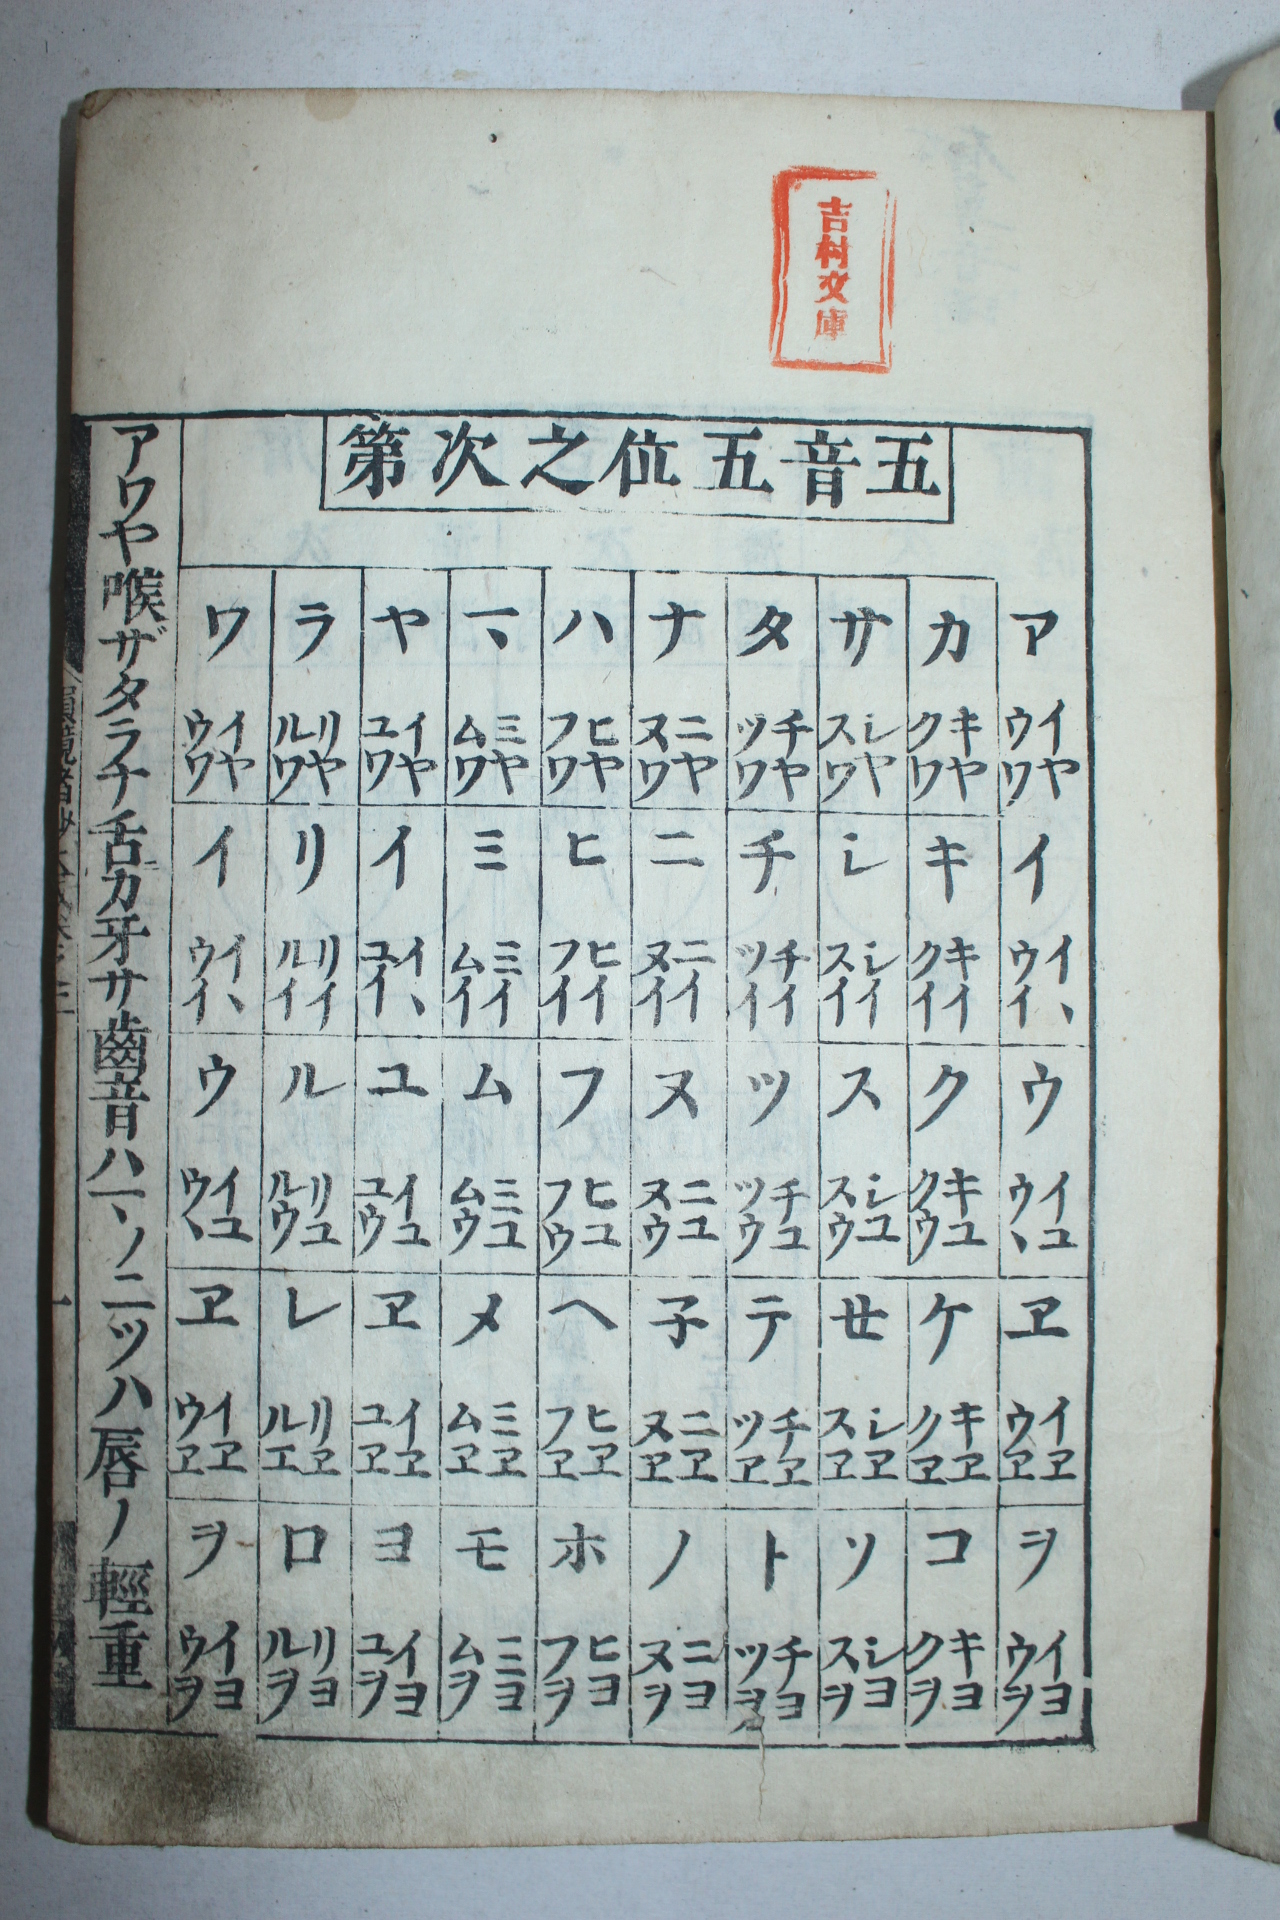 吉村文庫
五音五位之次第
ア カ サ タ ナ ハ マ ヤ ラ ワ
イヤ キヤ シヤ チヤ ニヤ ヒヤ ミヤ イヤ リヤ イヤ
ウワ クワ スワ ツワ ヌワ フワ ムワ ユワ ルワ ウワ
イ キ シ チ ニ ヒ ミ イ リ イ
イヽ キイ シイ チイ ニイ ヒイ ミイ イヽ リイ イヽ
ウイ クイ スイ ツイ ヌイ フイ ムイ ユイ ルイ ウイ
ウ ク ス ツ ヌ フ ム ユ ル ウ
イユ キユ シユ チユ ニユ ヒユ ミユ イユ リユ イユ
ウヽ クウ スウ ツウ ヌウ フウ ムウ ユウ ルウ ウヽ
ヱ ケ セ テ 子 ヘ メ ヱ レ ヱ
イヱ キヱ シヱ チヱ ニヱ ヒヱ ミヱ イヱ リヱ イヱ
ウヱ クヱ スヱ ツヱ ヌヱ フヱ ムヱ ユヱ ルエ ウヱ
ヲ コ ソ ト ノ ホ モ ヨ ロ ヲ
イヨ キヨ シヨ チヨ ニヨ ヒヨ ミヨ イヨ リヨ イヨ
ウヲ クヲ スヲ ツヲ ヌヲ フヲ ムヲ ユヲ ルヲ ウヲ
アワヤ喉ザタラナ舌カ牙サ齒音ハマノ二ツハ唇ノ輕重
一